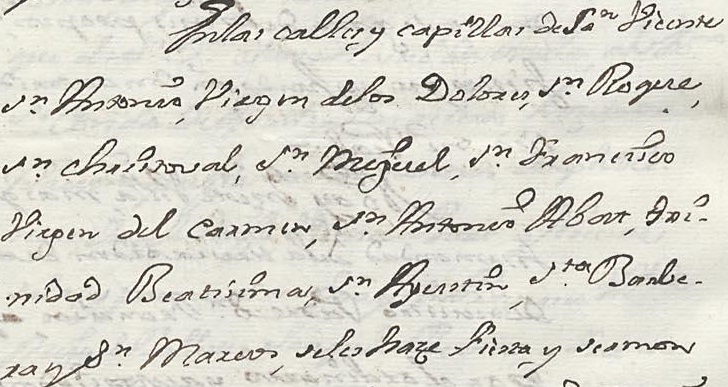 Enlas calles, y capillas de Sn. Vicente
sn. Antonio, Virgen delos Dolores, sn. Roque,
sn. Christoval, Sn. Miguel, sn. Francisco
Virgen del Carmen, sn. Antonio Abat, Tri-
nidad Beatisima, sn. Agustin, sta. Barbe-
ra, y Sn. Marcos, seles haze Fiesta, y sermon